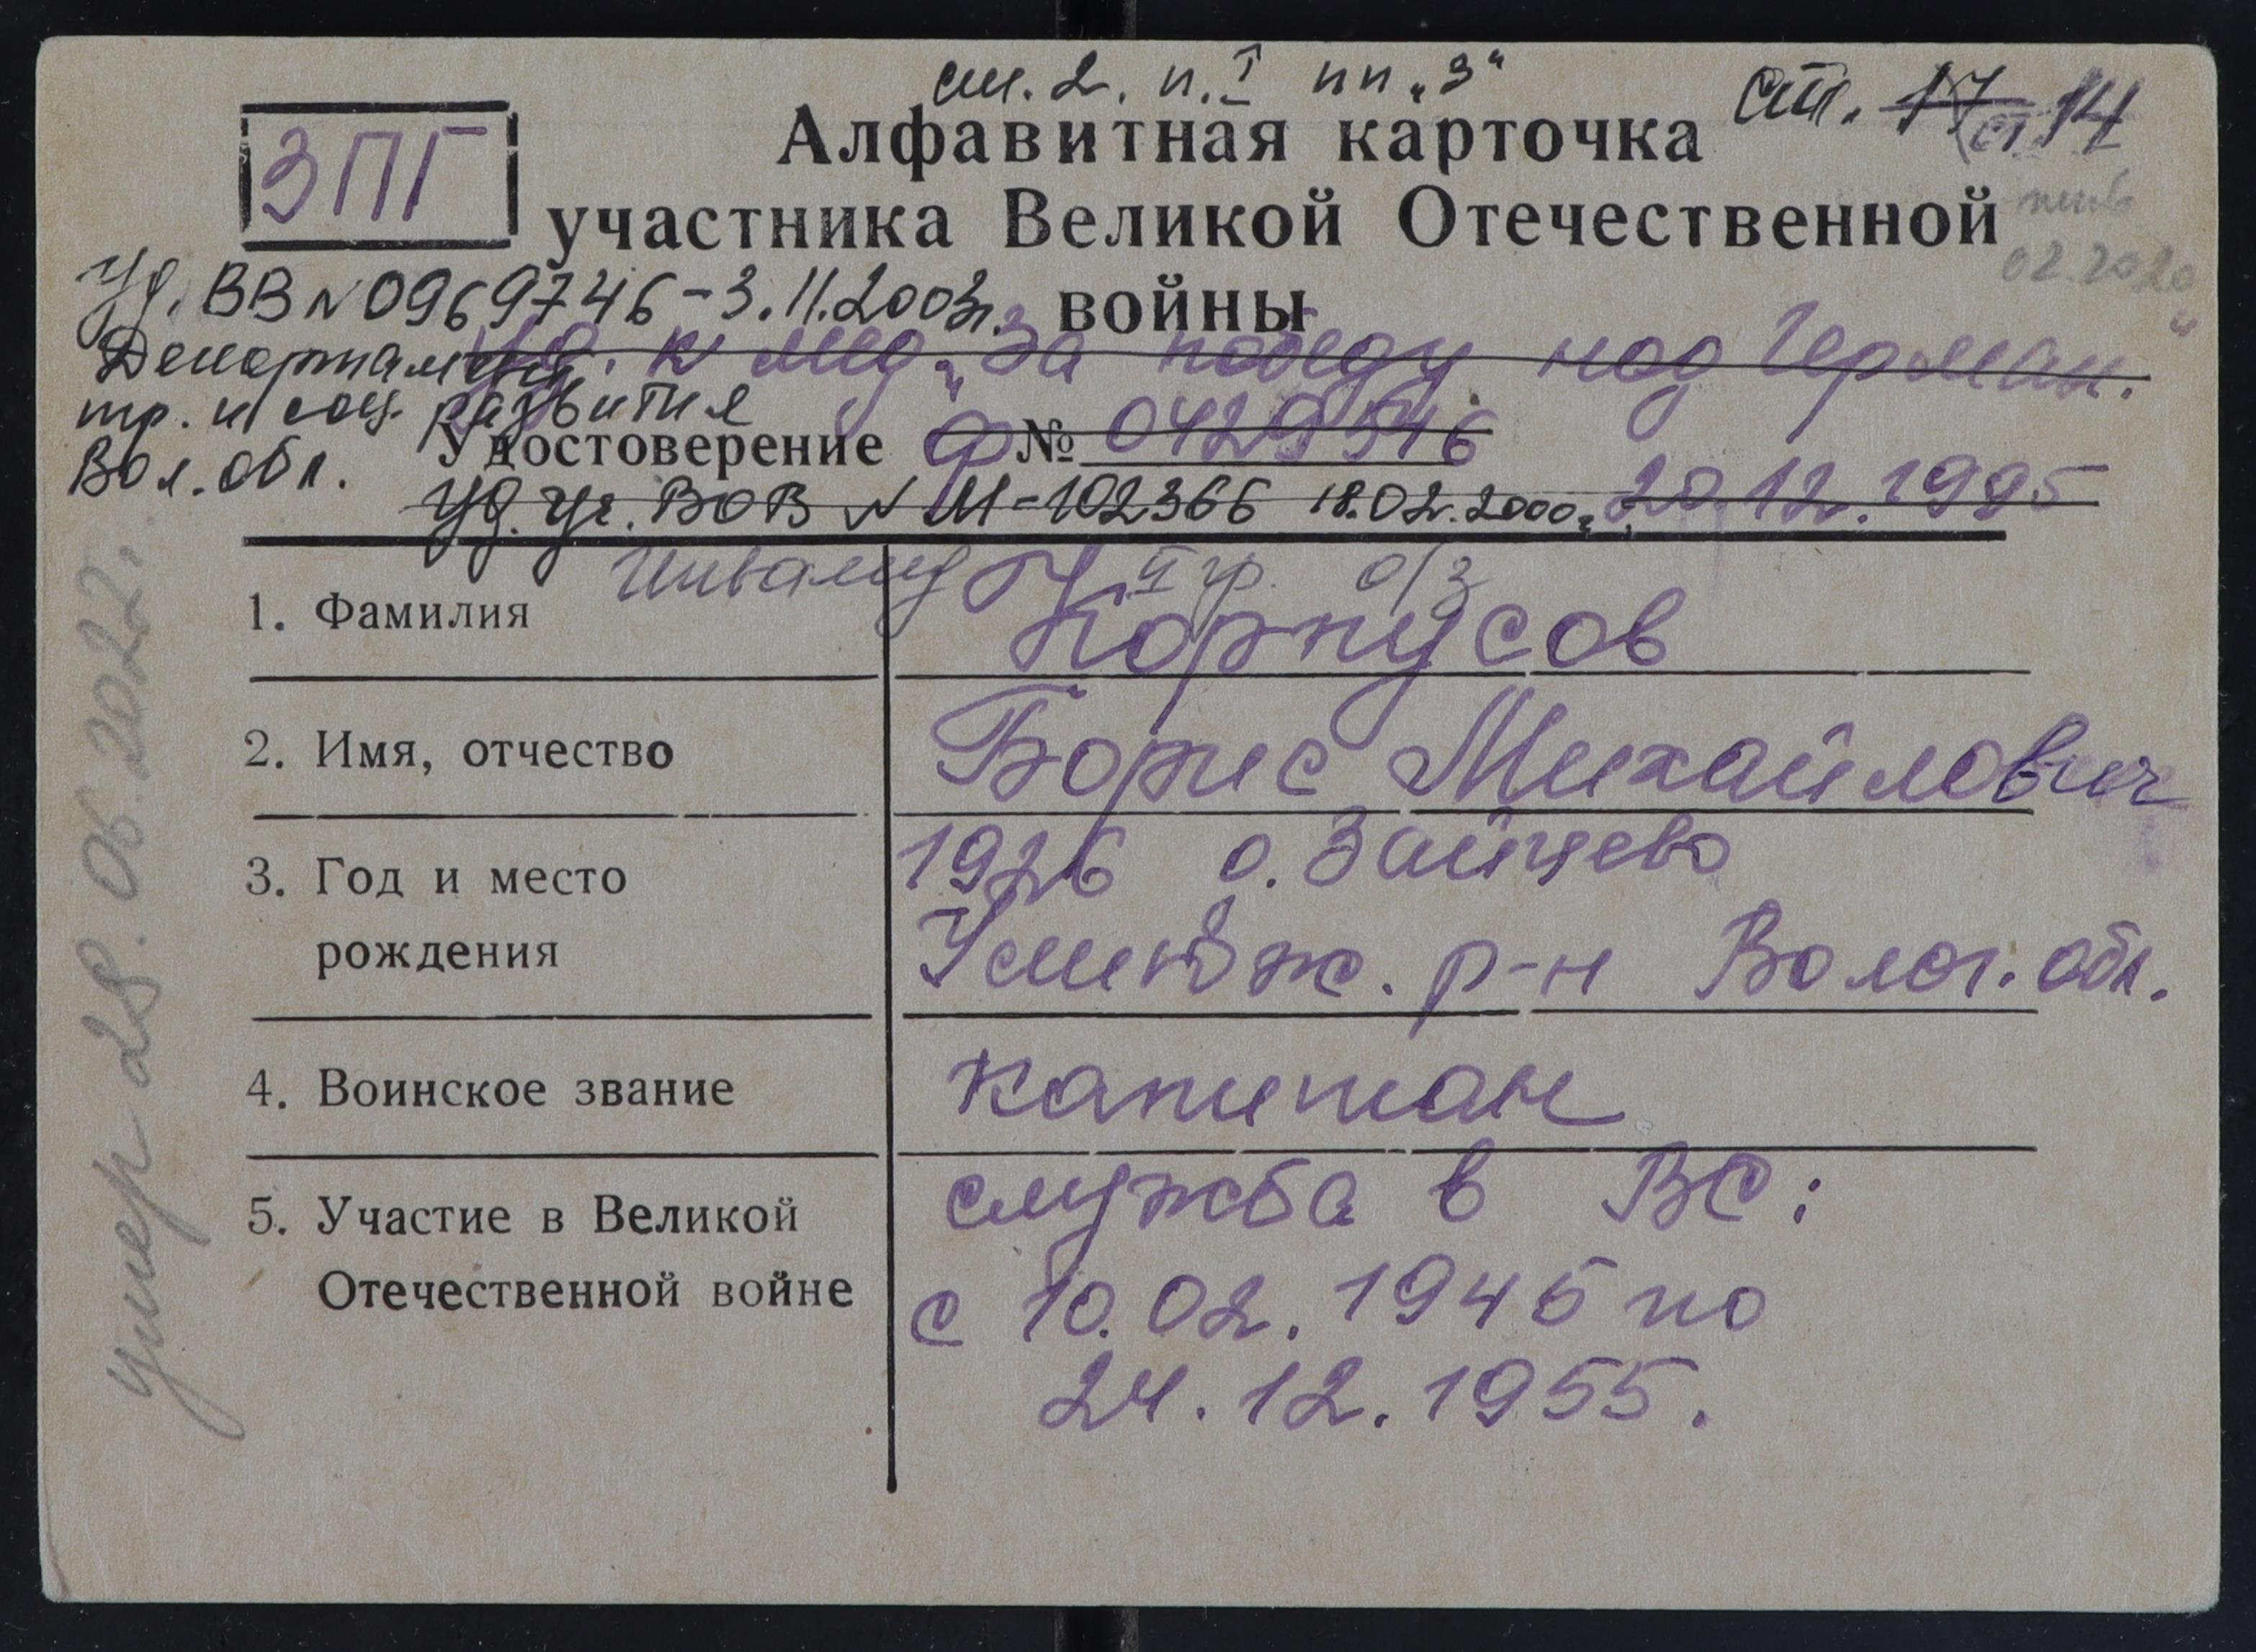 ст. 2. п. I пп „З“
ст. 17 ст 14
ЗПГ
Алфавитная карточка
участника Великой Отечественной
войны
02.2020
Уд. ВВ № 0969746-3.11.2003г.
Департамент
тр. и соц. развития
Вол. обл.
Уд. к мед. „За победу над Герман.“
Удостоверение Ф № 0429546
20.12.1995
Уд. уч. ВОВ № М-102366 18.02.2000г.
Инвалид II гр. о/з
1. Фамилия Корпусов
2. Имя, отчество Борис Михайлович
3. Год и место 1926 о. Зайцево
рождения Устюж. р-н Волог. обл.
4. Воинское звание капитан
5. Участие в Великой служба в ВС:
Отечественной войне с 10.02.1945 по
24.12.1955.
умер 28.06.2022г.